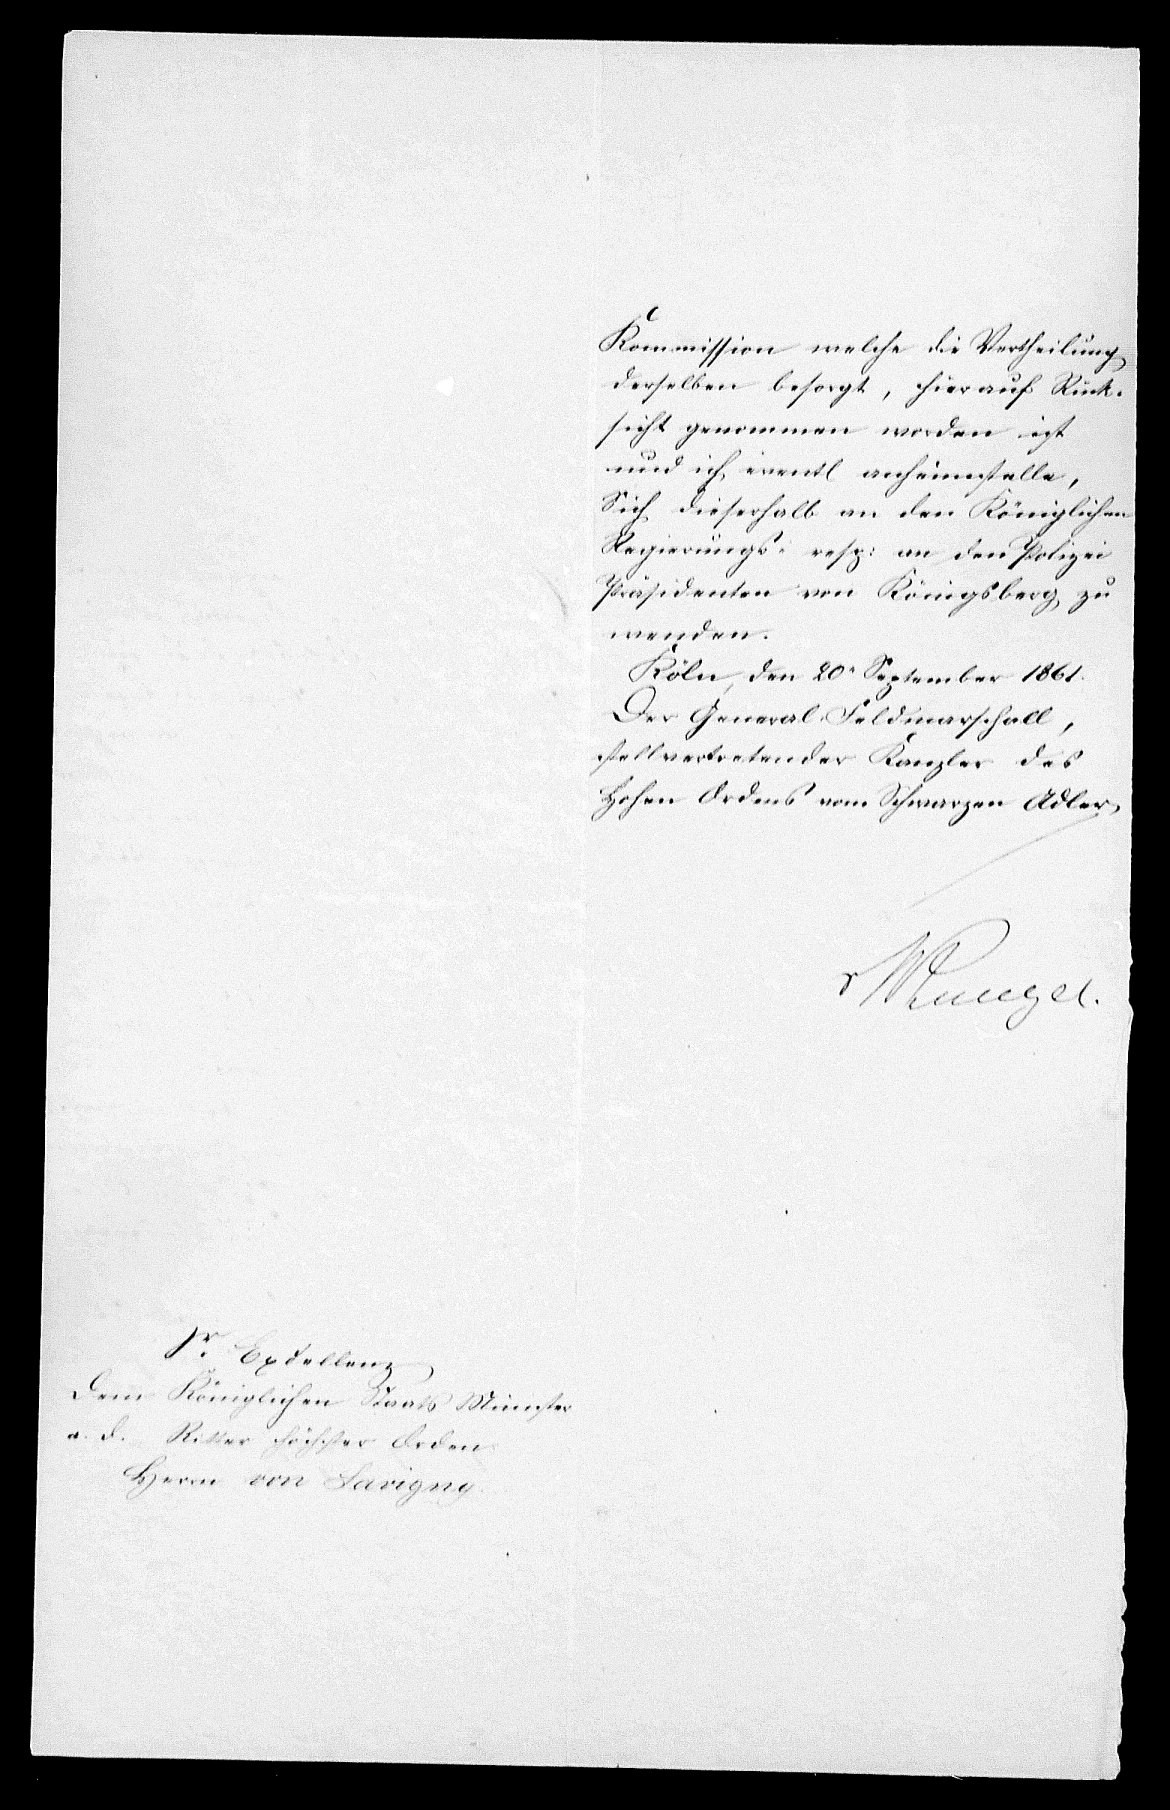 Kommission welche die Vertheilung
derselben besorgt, hierauf Rück-
sicht genommen worden ist
und ich eventl anheimstelle,
Sich dieserhalb an den Königlichen
Regierungs- resp: an den Polizei
Präsidenten von Königsberg zu
wenden.
Köln, den 20n September 1861.
Der General-Feldmarschall,
stellvertretender Kanzler des
Hohen Ordens vom Schwarzen Adler,
Wrangel.
Sr. Excellenz
dem Königlichen Staats Minister
a. d. Ritter höchster Orden
Herrn von Savigny.